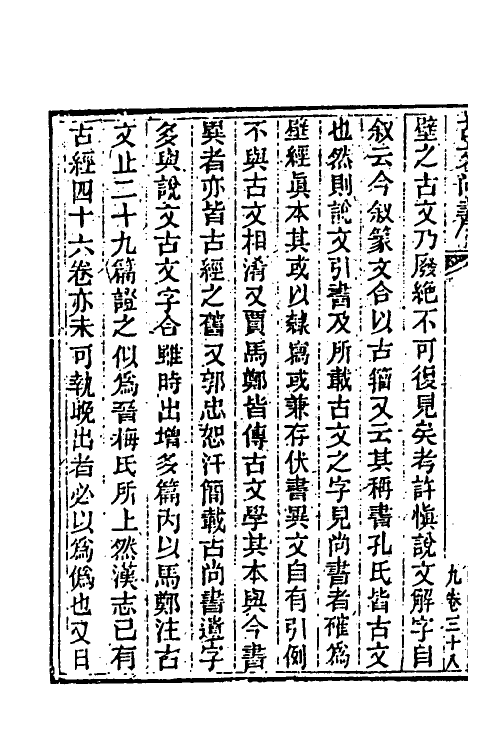 壁之古文乃廢絕不可復見矣考許慎說文解字自
叙云今叙篆文合以古籀又云其稱書孔氏皆古文
也然則說文引書及所載古文之字見尚書者確爲
壁經眞本其或以隸寫或兼存伏書異文自有引例
不與古文相淆又賈馬鄭皆傳古文學其本與今書
異者亦皆古經之舊又郭忠恕汗簡載古尚書遺字
多與說文古文字合雖時出增多篇內以馬鄭注古
文止二十九篇證之似爲晉梅氏所上然漢志已有
古經四十六卷亦未可執晚出者必以爲僞也又日
九卷三十八